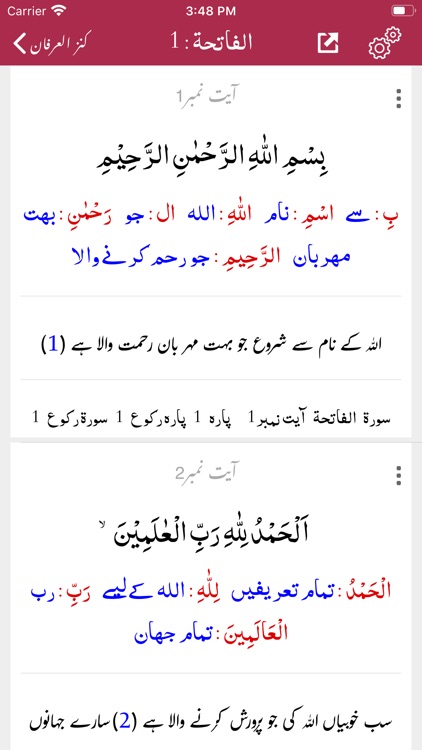 Carrier 3:48 PM
کنز العرفان الفاتحة : 1
آیت نمبر1
بِسْمِ اللّٰهِ الرَّحْمٰنِ الرَّحِیْمِ
بِ: سے اسْمِ: نام اللّٰهِ: الله ال: جو رَحْمٰنِ: بهت
مهربان الرَّحِيمِ: جو رحم کرنے والا
اللہ کے نام سے شروع جو بہت مہربان رحمت والا ہے (1)
سورة الفاتحة آیت نمبر1 پارہ 1 پارہ رکوع 1 سورة رکوع 1
آیت نمبر2
اَلْحَمْدُ لِلّٰهِ رَبِّ الْعٰلَمِیْنَۙ
الْحَمْدُ: تمام تعریفیں لِلّٰهِ: الله کے لیے رَبِّ: رب
الْعَالَمِينَ: تمام جهان
سب خوبیاں اللہ کی جو پرورش کرنے والا ہے (2) سارے جہانوں